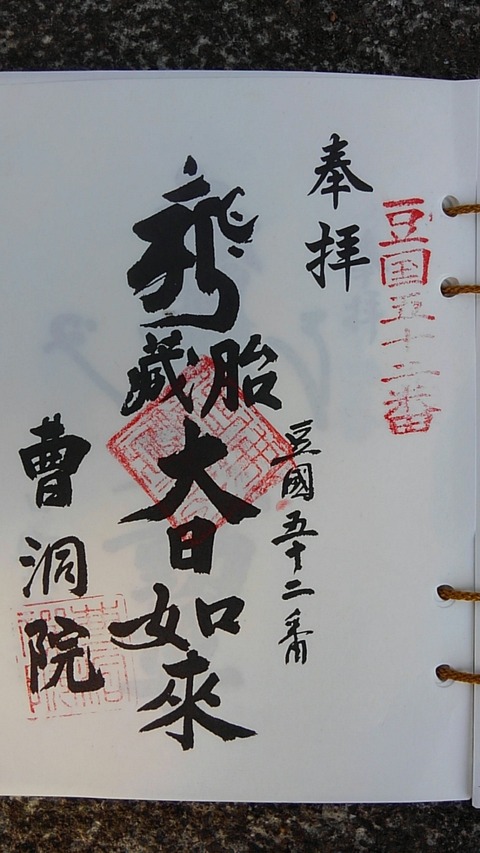 豆国五十二番
奉拝
豆國五十二番
胎蔵
大日如來
曹洞院